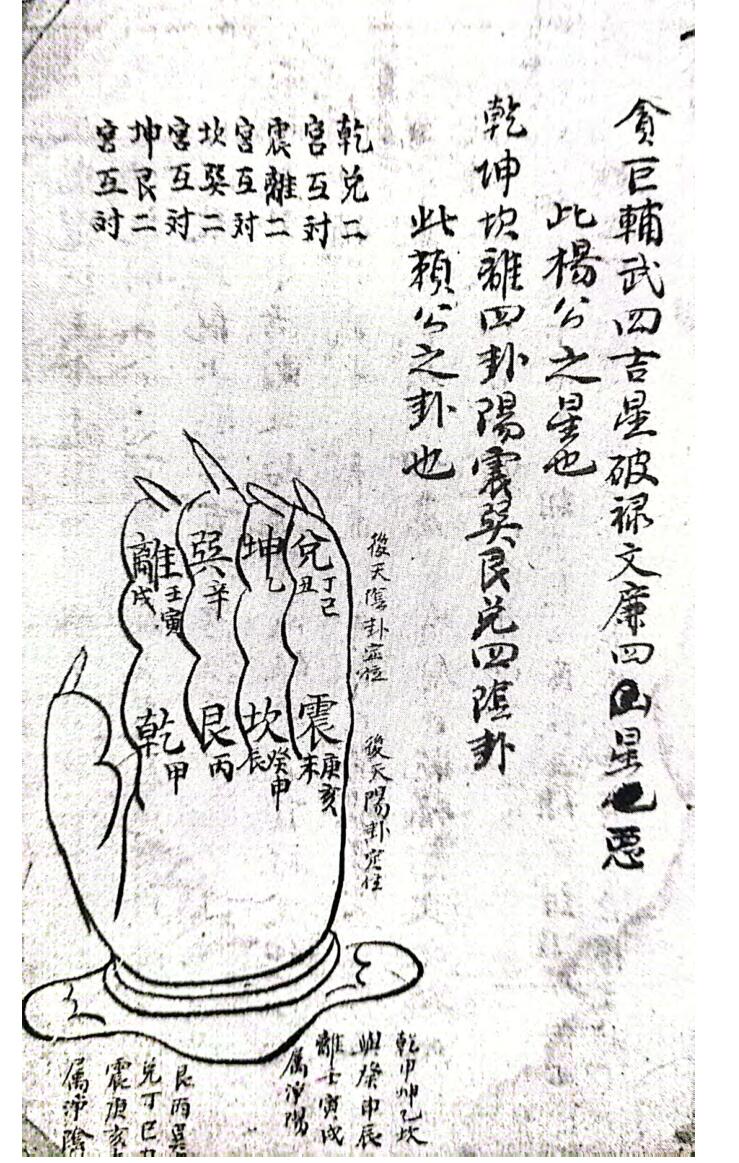 貪巨輔武四吉星破禄文廉四凶星惡
此楊公之星也
乾坤坎離四卦陽震巽艮兑四陰卦
此頼公之卦也
乾兑二
宮互对
震離二
宮互对
坎巽二
宮互对
坤艮二
宮互对
後天陰卦定位
兑丁己丑
坤乙
巽辛
離壬寅戌
後天陽卦定位
震庚亥未
坎癸申辰
艮丙
乾甲
乾甲坤乙坎
癸申辰
離壬寅戌
属淨陽
艮丙巽
兑丁巳
震庚亥
属淨陰